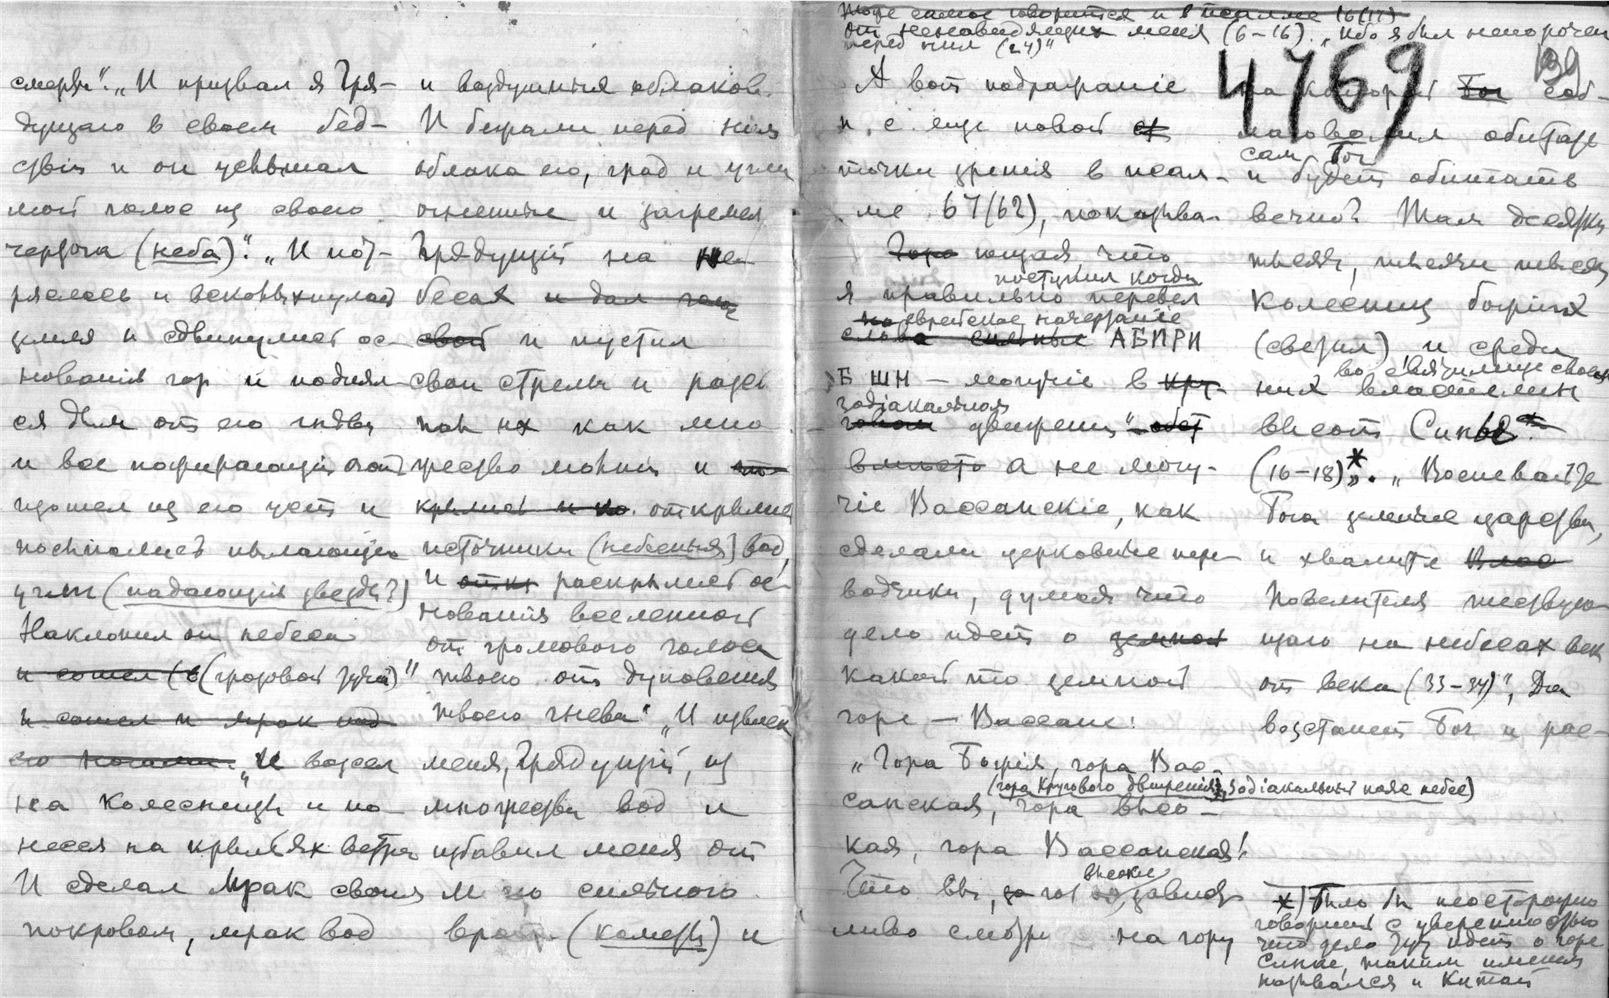 смерти". „И призвал я Гря-
дущаго в своем бед-
ствiи и он услышал
мой голос из своего
чертога (неба)". „И пот-
ряслась и всколыхнулась
земля и сдвинулись ос-
нованiя гор и поднял-
ся дым от его гнева
и все пожирающiй огонь
изошел из его уст и
посыпались пылающiе
угли (падающiя звезды?)
Наклонил он небеса
и сошел (в (грозовой туче)"
и сошел и мрак под
его ногами. „И возсел
на колесницу и по-
несся на крыльях ветра
И сделал мрак своим
покровом, мрак вод
и воздушныя облаков.
И бежали перед ним
облака его, град и угли
огненные и загремел
Грядущiй на не-
бесах и дал
свой и пустил
свои стрелы и разсы
пал их как мно
жество молнiй и
крылись и
открылись
источники (небесныя) вод,
и раскрылись ос-
нованiя вселенной
от громового голоса
твоего от дуновения
твоего гнева" „И извлек
меня, Грядущiй, из
множества вод и
избавил меня от
моего сильного
врага (кометы) и
Тоже самое говорится и в псалме 16(17)
от ненавидящих меня (6–16). „Ибо я был непорочен
перед ним (24)"
4769
139
А вот подражанiе
и с еще новой
точки зрения в псал-
ме 67(68), показыва-
Гора ющая, что
поступил когда
я правильно перевел
еврейское начертанiе
слова сильные АБИРИ
БШН – могучiе в кру-
зодiакальном
говом движенiи"
вместо а не могу-
чiе Вассанскiе, как
сделали церковные пере-
водчики, думая что
дело идет о земной
какой то земной
горе – Вассане:
„Гора Божiя, гора Вас-
(гора кругового движенiя, зодiакальный пояс небес)
санская, гора высо-
кая, гора Вассанская!
высокие
Что вы, завист
ливо смотри на гору
на которой Бог соб-
лаговолил обитать
сам Бог
и будет обитать
вечно? Там десятки
тысяч, тысячи тысяч
колесниц божiих
(светил), и среди
во святилище своем
них властелин
высот Синая*
(16–18)*". „Воспевайте
Бога земные царства,
и хвалите
Повелителя шествую-
щаго на небесах век
от века (33–34)", Да
возстанет Бог и рас-
*) Было бы неосторожно
говорить с уверенностью
что дело тут идет о горе
Синае, таким именем
назывался и Китай